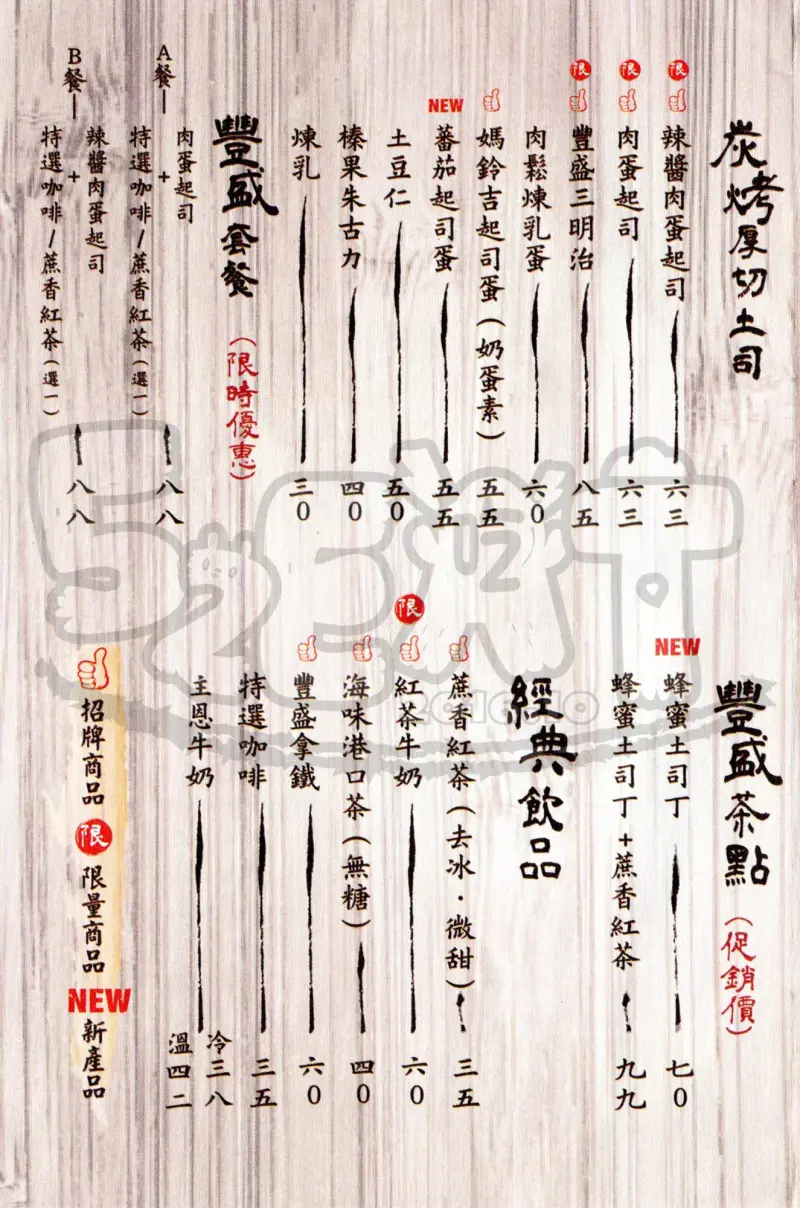 炭烤厚切土司
限 辣醬肉蛋起司 六三
限 肉蛋起司 六三
限 豐盛三明治 八五
肉鬆煉乳蛋 六0
媽鈴吉起司蛋(奶蛋素) 五五
NEW 蕃茄起司蛋 五五
土豆仁 五0
榛果朱古力 四0
煉乳 三0
豐盛套餐(限時優惠)
A餐—肉蛋起司
+
特選咖啡/蔗香紅茶(選一) 八八
B餐—辣醬肉蛋起司
+
特選咖啡/蔗香紅茶(選一) 八八
豐盛茶點(促銷價)
NEW 蜂蜜土司丁 七0
蜂蜜土司丁+蔗香紅茶 九九
經典飲品
蔗香紅茶(去冰·微甜) 三五
限 紅茶牛奶 六0
海味港口茶(無糖) 四0
豐盛拿鐵 六0
特選咖啡 三五
主恩牛奶 冷三八
溫四二
招牌商品 限 限量商品 NEW 新產品